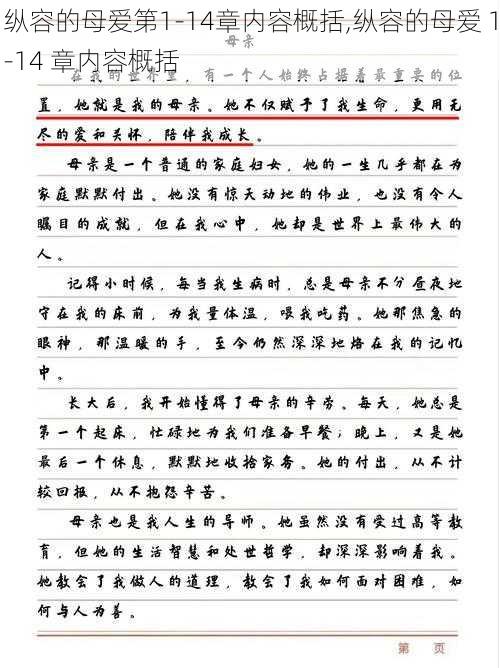 纵容的母爱第1-14章内容概括,纵容的母爱 1
-14 章内容概括
母亲
在我的世界里，有一个人始终占据着最重要的位
置，她就是我的母亲。她不仅赋予了我生命，更用无
尽的爱和关怀，陪伴我成长。
母亲是一个普通的家庭妇女，她的一生几乎都在为
家庭默默付出。她没有惊天动地的伟业，也没有令人
瞩目的成就，但在我心中，她却是世界上最伟大的
人。
记得小时候，每当我生病时，总是母亲不分昼夜地
守在我的床前，为我量体温，喂我吃药。她那焦急的
眼神，那温暖的手，至今仍然深深地烙在我的记忆
中。
长大后，我开始懂得了母亲的辛劳。每天，她总是
第一个起床，忙碌地为我们准备早餐；晚上，又是她
最后一个休息，默默地收拾家务。她的付出，从不计
较回报，从不抱怨辛苦。
母亲也是我人生的导师。她虽然没有受过高等教
育，但她的生活智慧和处世哲学，却深深影响着我。
她教会了我做人的道理，教会了我如何面对困难，如
何与人为善。
第 页